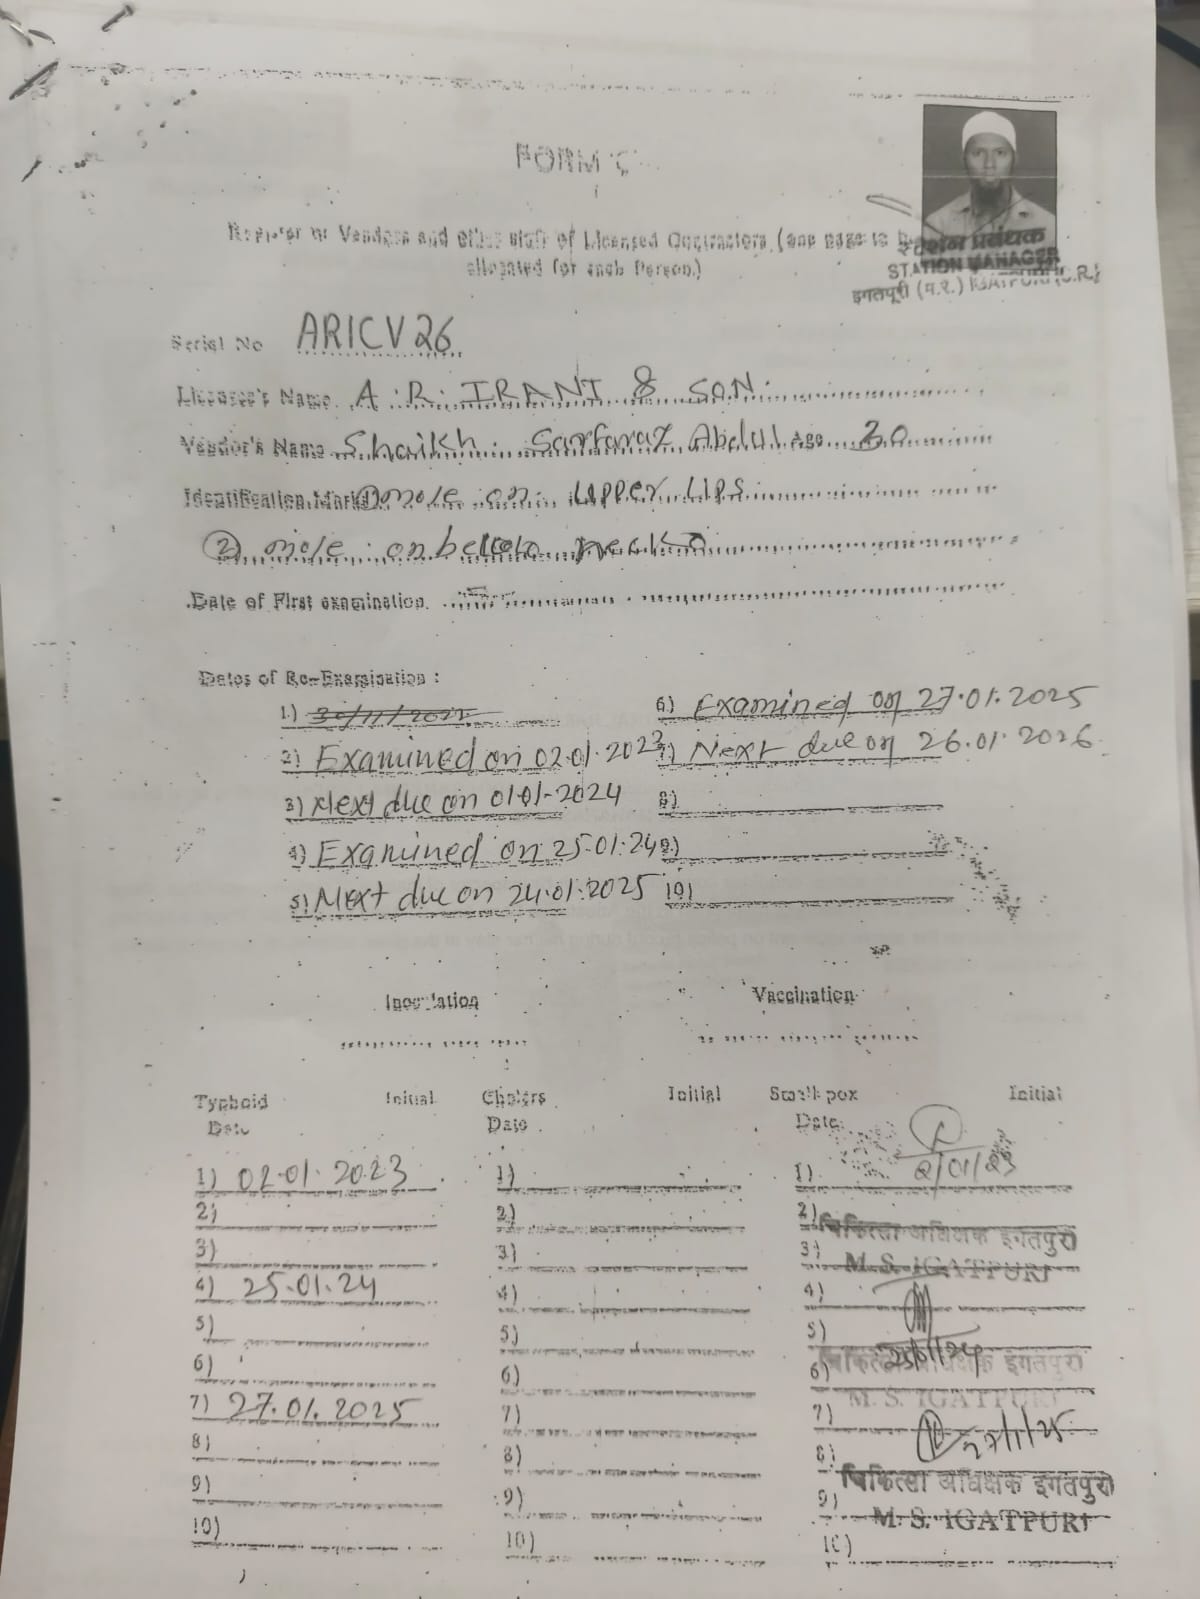 FORM 'C'
Register of Vendors and other staff of Licensed Contractors. (one page to be
allocated for each Person.)
स्टेशन प्रबंधक
STATION MANAGER
इगतपूरी (म.रे.) IGATPURI (C.R.)
Serial No ARICV26
Licensee's Name A. R. IRANI & SON.
Vendor's Name Shaikh Sarfaraz Abdul Age 30
Identification Mark ① mole on upper LIPS
② mole on neck
Date of First examination
Dates of Re-Examination :
1) 30/11/2022
2) Examined on 02.01.2023
3) Next due on 01.01-2024
4) Examined on 25.01.24
5) Next due on 24.01.2025
6) Examined on 27.01.2025
7) Next due on 26.01.2026
8)
9)
10)
Inoculation Vaccination
Typhoid Initial Cholera Initial Small pox Initial
Date Date Date
1) 02.01.2023 1) 1) 2/01/23
2) 2) 2) चिकित्सा अधिक्षक इगतपुरी
3) 3) 3) M. S. IGATPURI
4) 25.01.24 4) 4)
5) 5) 5) 25/1/24
6) 6) 6) चिकित्सा अधिक्षक इगतपुरी
M. S. IGATPURI
7) 27.01.2025 7) 7) 27/1/25
8) 8) 8) चिकित्सा अधिक्षक इगतपुरी
9) 9) 9) M. S. IGATPURI
10) 10) 10)